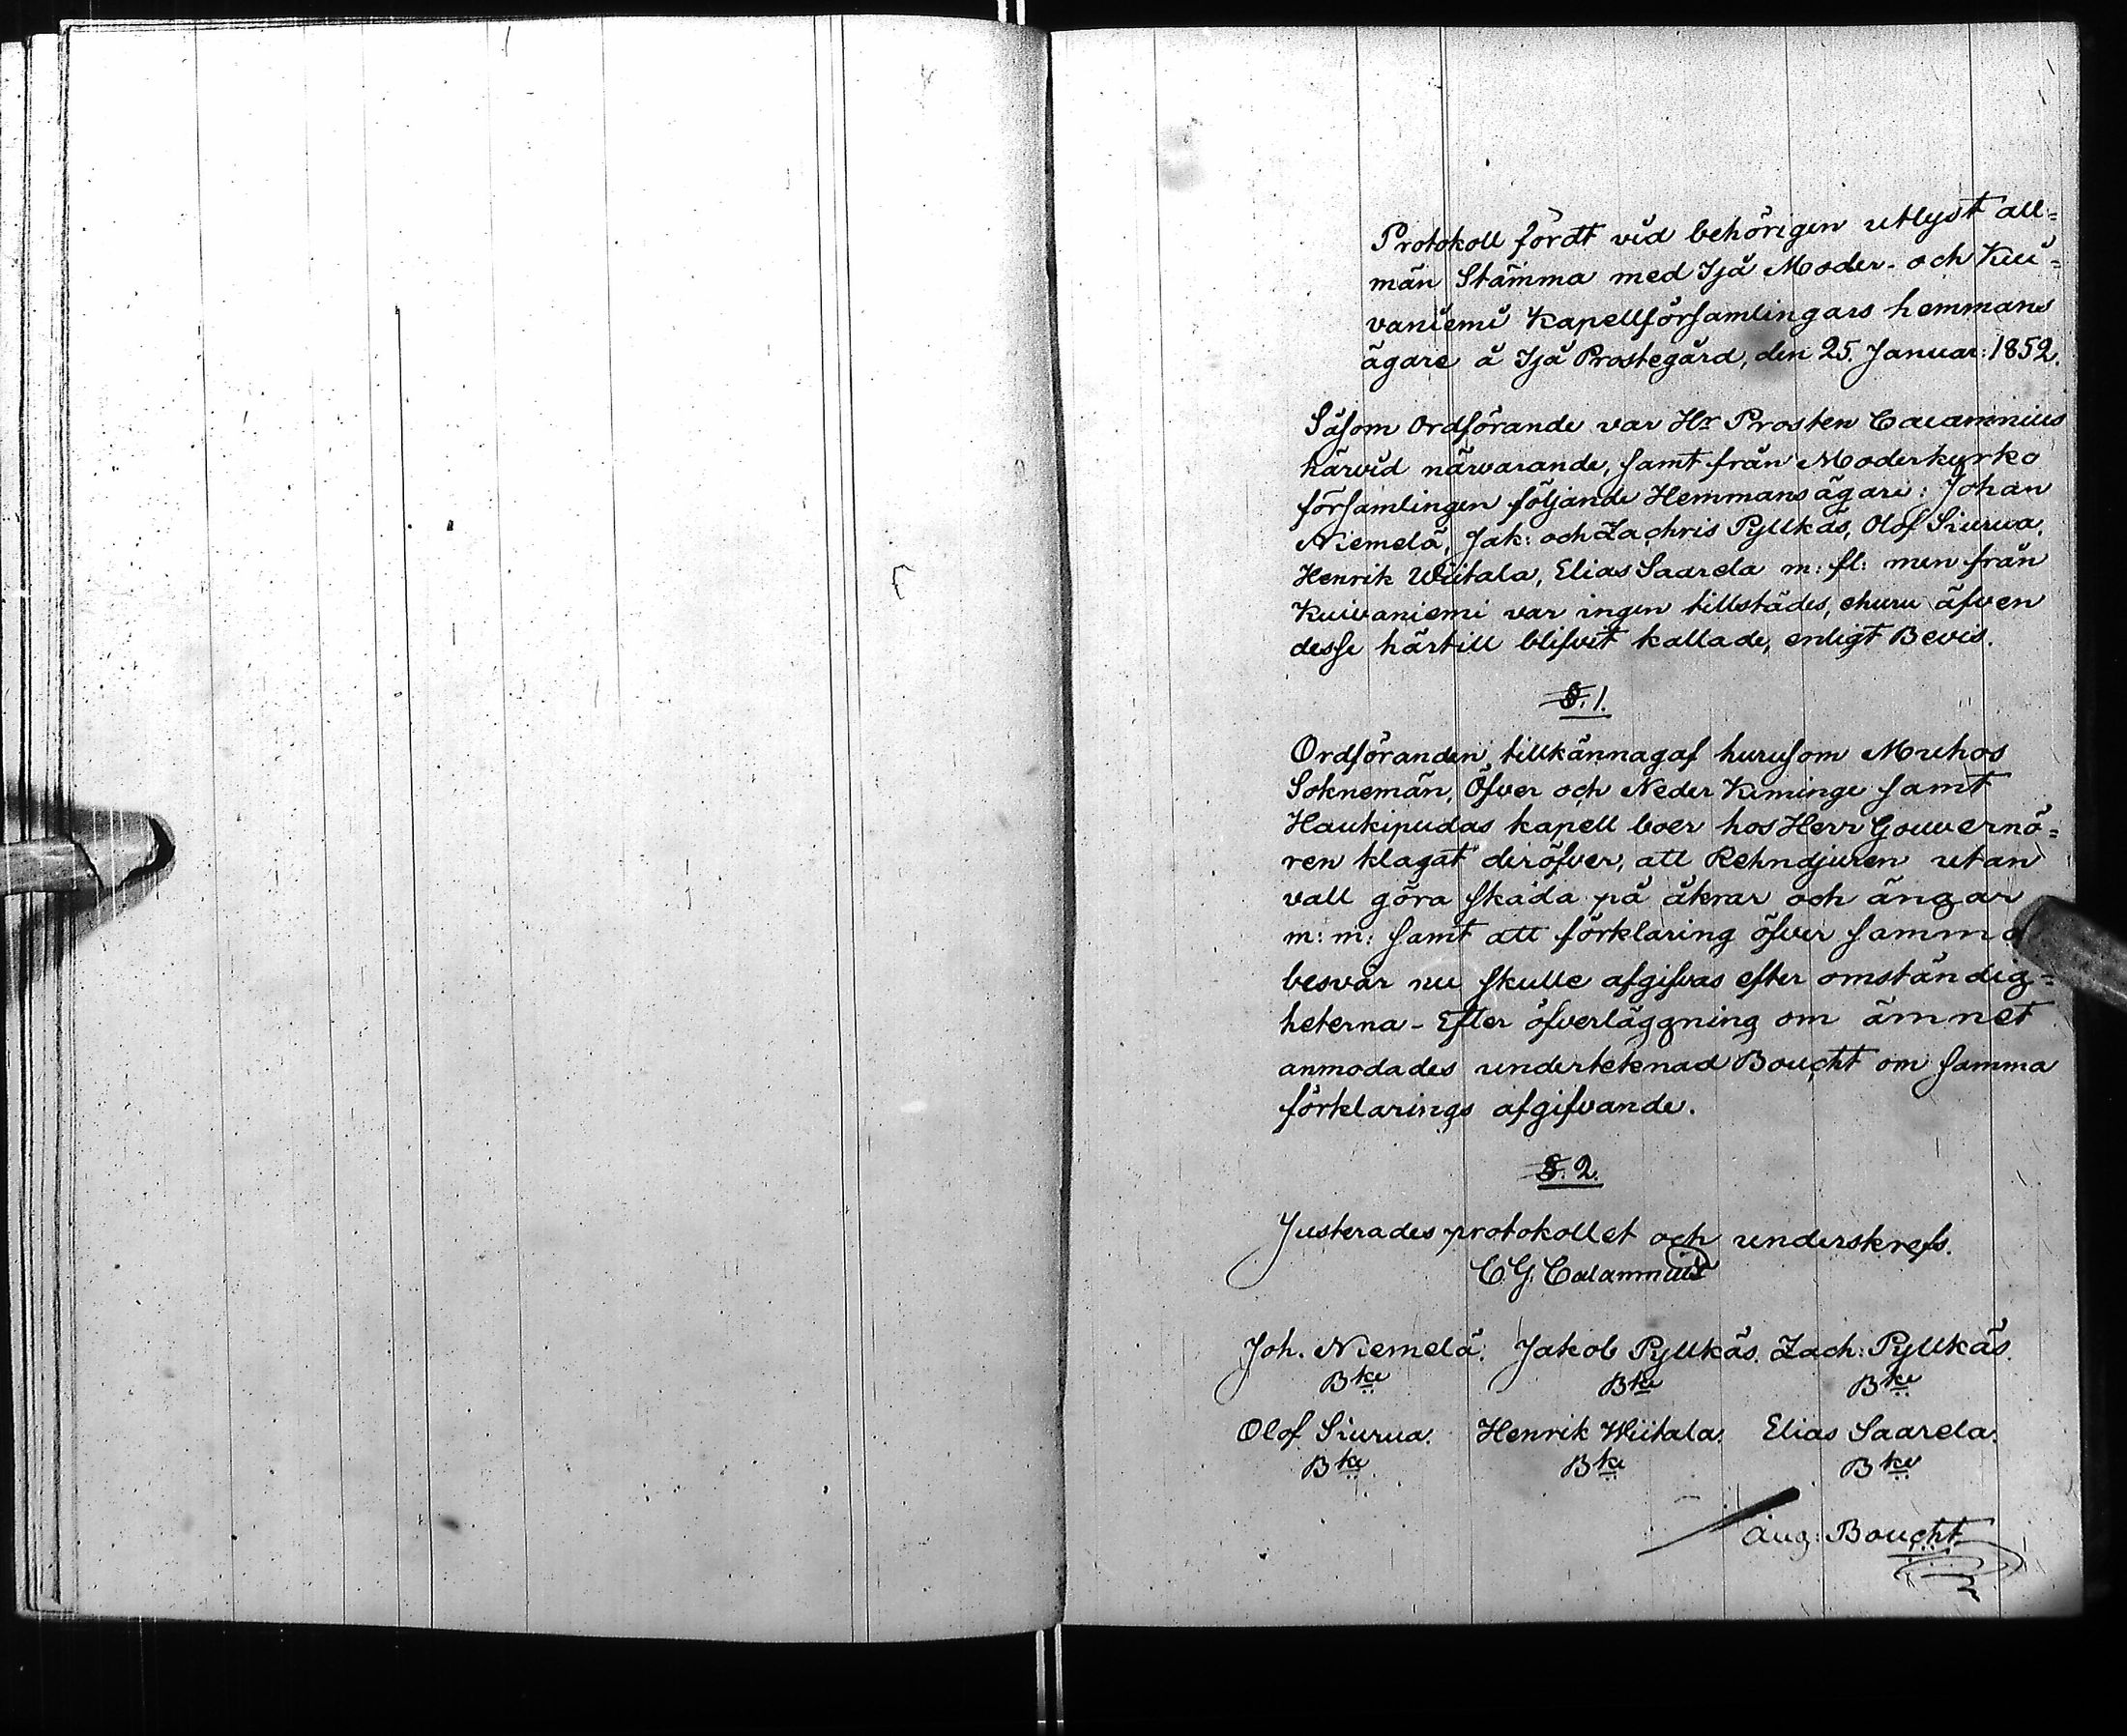 Protokoll fördt vid behörigen utlyst all=
män Stämma med Ijå Moder- och Kui=
vaniemi Kapellförsamlingars hemmans
ägare å Ijå Prostegård, den 25. Januar: 1852.
Såsom Ordförande var Hr Prosten Calamnius
härvid närvarande, samt från Moderkyrko
församlingen följande Hemmansägare: Johan
Niemelä, Jak: och Zachris Pyllkäs, Olof Siurua,
Henrik Wiitala, Elias Saarela m: fl: men från
Kuivaniemi var ingen tillstädes, ehuru äfven
desse härtill blifvit kallade, enligt Bevis.
§. 1.
Ordföranden tillkännagaf hurusom Muhos
Soknemän, Öfver och Neder Kiminge samt
Haukipudas kapell boer hos Herr Gouvernö=
ren klagat deröfver, att Rehndjuren utan
vall göra skada på åkrar och ängar
m: m: samt att förklaring öfver samma
besvär nu skulle afgifvas efter omständig=
heterna - Efter öfverläggning om ämnet
anmodades underteknad Boucht om samma
förklarings afgifvande.
§. 2.
Justerades protokollet och underskrefs.
C. G. Calamnius
Joh. Niemelä. Jakob Pyllkäs. Zach: Pyllkäs.
Bke Bke Bke
Olof Siurua. Henrik Wiitala. Elias Saarela.
Bke Bke Bke
Aug: Boucht